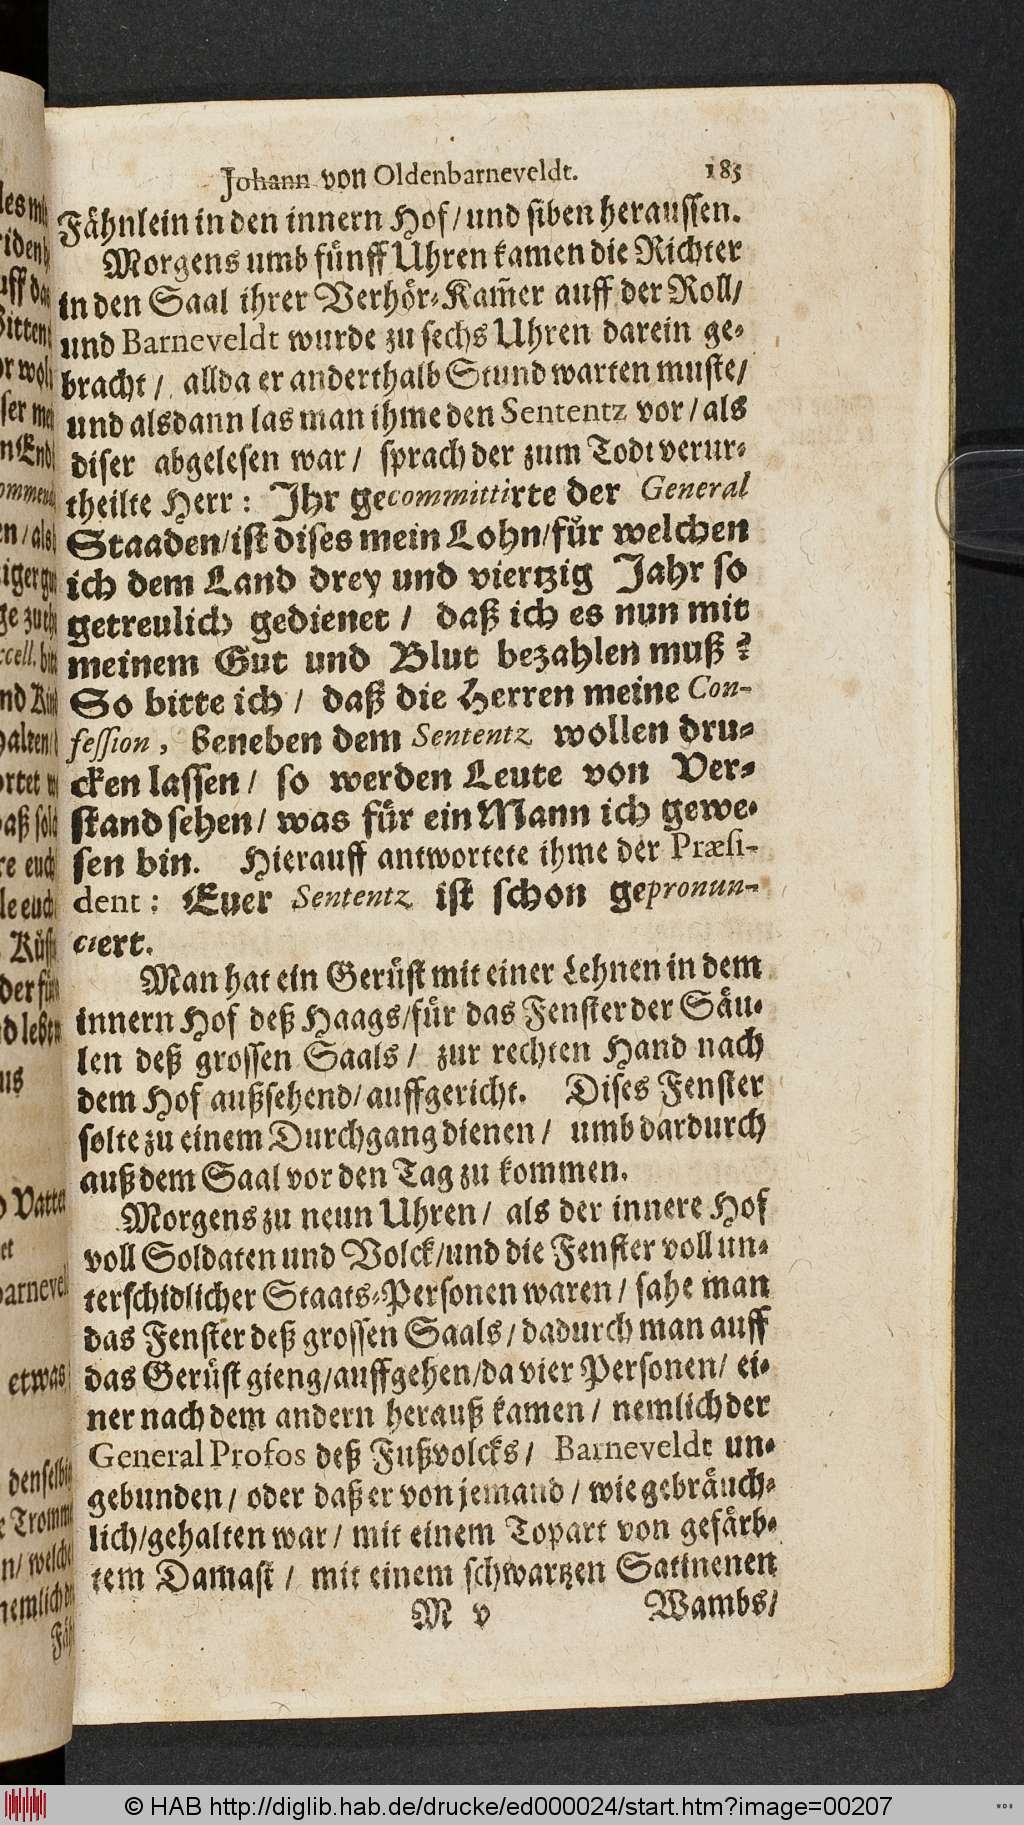 Johann von Oldenbarneveldt. 185
Fåhnlein in den innern Hof/ und siben heraussen.
Morgens umb fünff Uhren kamen die Richter
in den Saal ihrer Verhör-Kam̃er auff der Roll/
und Barneveldt wurde zu sechs Uhren darein ge-
bracht/ allda er anderthalb Stund warten muste/
und alsdann las man ihme den Sententz vor/ als
diser abgelesen war/ sprach der zum Todt verur-
theilte Herr: Ihr gecommittirte der General
Staaden/ ist dises mein Lohn/ für welchen
ich dem Land drey und viertzig Jahr so
getreulich gedienet/ daß ich es nun mit
meinem Gut und Blut bezahlen muß?
So bitte ich/ daß die Herren meine Con-
fession, beneben dem Sententz wollen dru-
cken lassen/ so werden Leute von Ver-
stand sehen/ was für ein Mann ich gewe-
sen bin. Hierauff antwortete ihme der Præsi-
dent: Euer Sententz ist schon gepronun-
ciert.
Man hat ein Gerüst mit einer Lehnen in dem
innern Hof deß Haags/ für das Fenster der Säu-
len deß grossen Saals/ zur rechten Hand nach
dem Hof außsehend/ auffgericht. Dises Fenster
solte zu einem Durchgang dienen/ umb dardurch
auß dem Saal vor den Tag zu kommen.
Morgens zu neun Uhren/ als der innere Hof
voll Soldaten und Volck/ und die Fenster voll un-
terschidlicher Staats-Personen waren/ sahe man
das Fenster deß grossen Saals/ dadurch man auff
das Gerüst gieng/ auffgehen/ da vier Personen/ ei-
ner nach dem andern herauß kamen/ nemlich der
General Profos deß Fußvolcks/ Barneveldt un-
gebunden/ oder daß er von jemand/ wie gebräuch-
lich/ gehalten war/ mit einem Topart von gefärb-
tem Damast/ mit einem schwartzen Satinenen
M v Wambs/
© HAB http://diglib.hab.de/drucke/ed000024/start.htm?image=00207